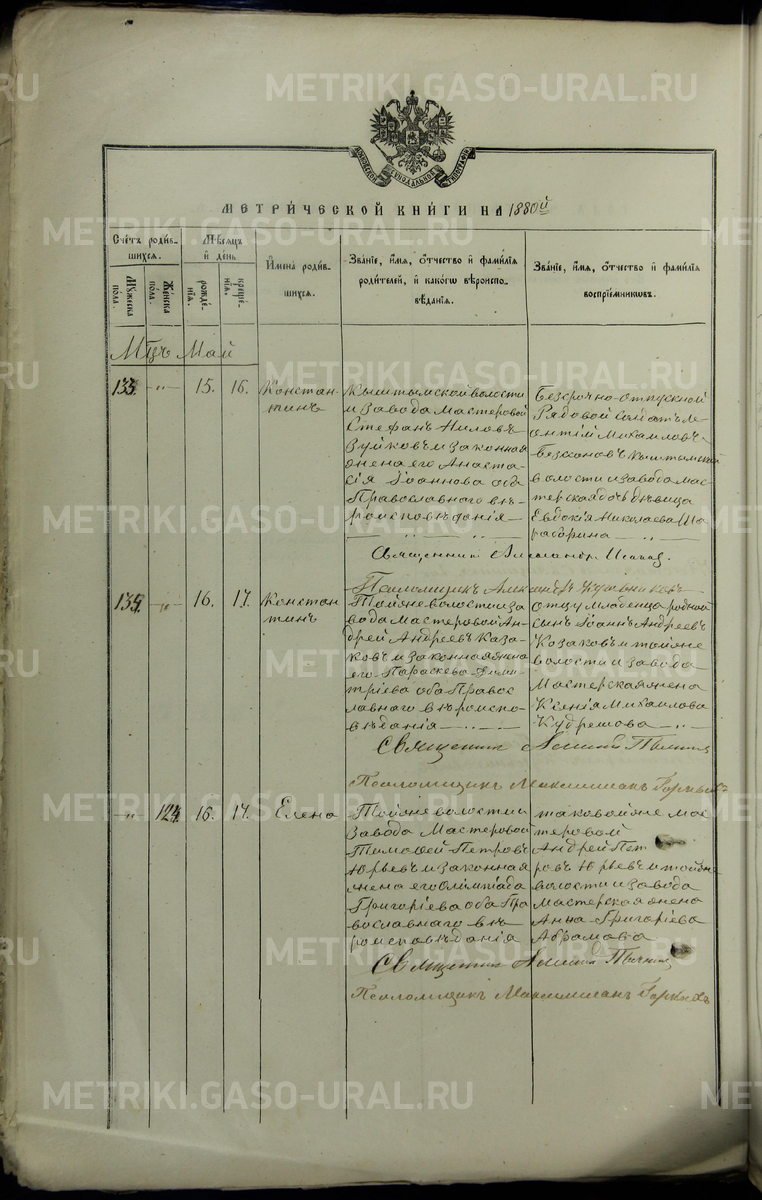 METRIKI.GASO-URAL.RU
МОСКОВСКОЙ СѴНОДАЛЬНОЙ ТИПОГРАФІИ
МЕТРИ́ЧЕСКОЙ КНИ́ГИ НА 1880й
Сче́тъ роди́в-
шихсѧ.
Мꙋ́жеска
по́ла.
Же́нска
по́ла.
Мѣ́сѧцъ
и҆ де́нь
рожде́-
нїѧ.
креще́-
нїѧ.
И҆мена̀ роди́в-
шихсѧ.
Зва́нїе, и҆́мѧ, ѻ҆́тчество и҆ фами́лїѧ
роди́телей, и҆ како́гѡ вѣроиспо-
вѣ́данїѧ.
Зва́нїе, и҆́мѧ, ѻ҆́тчество и҆ фами́лїѧ
воспрїе́мникѡвъ.
Мцъ Май
133. -"- 15. 16. Констан-
тинъ
Кыштымской волости
и завода Мастеровой
Стефанъ Ниловъ
Зуйковъ и законная
жена его Анаста-
сія Іоаннова оба
Православнаго вѣ-
роисповѣданія
Безсрочно-отпускной
Рядовой Солдатъ Ле-
онтій Михаиловъ
Безсоновъ Кыштымской
волости и завода мас-
терская дочь дѣвица
Евдокія Николаева Ша-
рабрина
Священникъ
Псаломщикъ
134. -"- 16. 17. Констан-
тинъ
Той же волости и за-
вода Мастеровой Ан-
дрей Андреевъ Каза-
ковъ и законная жена
его Параскева Дими-
тріева оба Правос-
лавнаго вѣроиспо-
вѣданія
Отцу младенца родной
сынъ Іоаннъ Андреевъ
Козаковъ и той же
волости и завода
Мастерская жена
Ксенія Михаилова
Кудрешова
Священникъ
Псаломщикъ Максимиліанъ
-"- 124. 16. 17. Елена
Той же волости и
завода Мастеровой
Тимоѳей Петровъ
Юрьевъ и законная
жена его Олимпіада
Григоріева оба Пра-
вославнаго вѣ-
роисповѣданія
таковой же мас-
теровой
Андрей Пет
ровъ Юрьевъ и той же
волости и завода
Мастерская жена
Анна Григоріева
Абрамова
Священникъ
Псаломщикъ Максимиліанъ